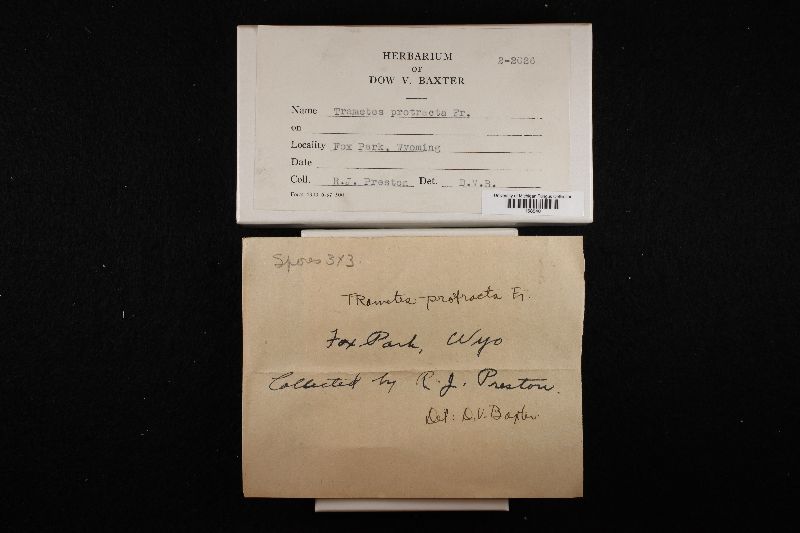 HERBARIUM
OF
DOW V. BAXTER
2-2026
Name Trametes protracta Fr.
on
Locality Fox Park, Wyoming
Date
Coll. R.J. Preston Det. D.V.B.
University of Michigan Fungus Collection
Spores 3x3.
Trametes protracta Fr.
Fox Park, Wyo
Collected by R. J. Preston.
Det: D.V. Baxter